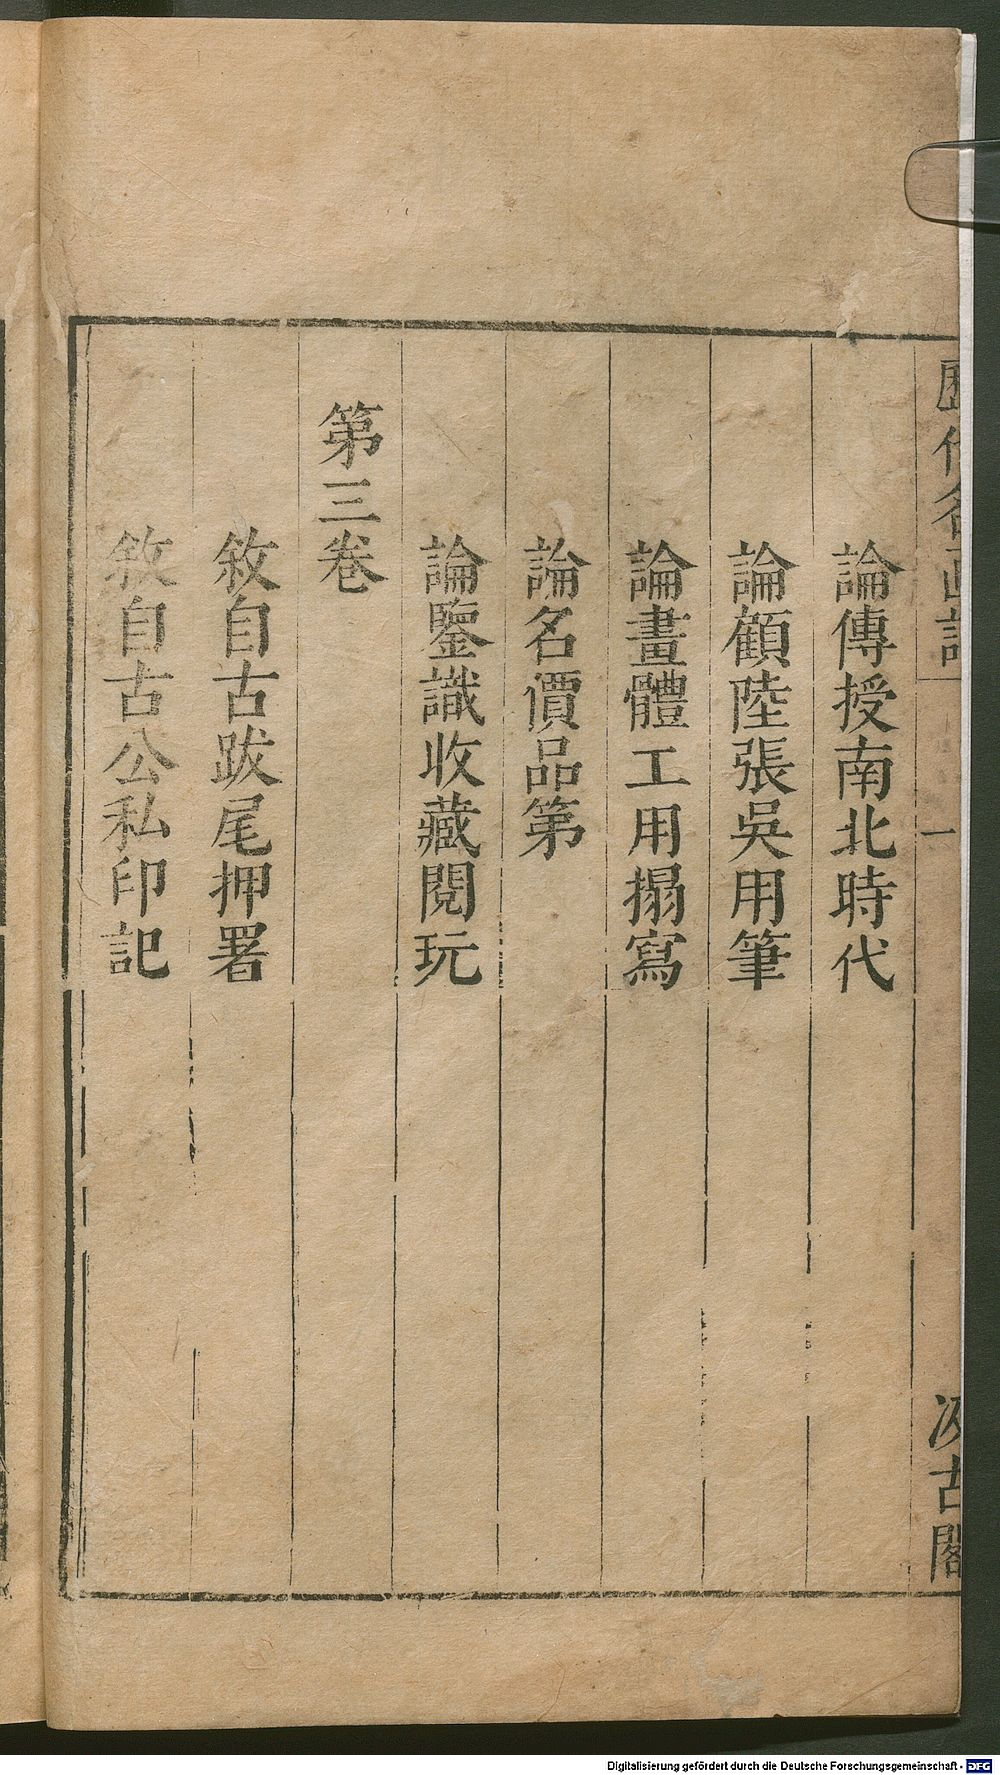 歷代名画記
一
汲古閣
論傳授南北時代
論顧陸張吳用筆
論畫體工用搨寫
論名價品第
論鑒識收藏閱玩
第三卷
敘自古跋尾押署
敘自古公私印記
Digitalisierung gefördert durch die Deutsche Forschungsgemeinschaft - DFG